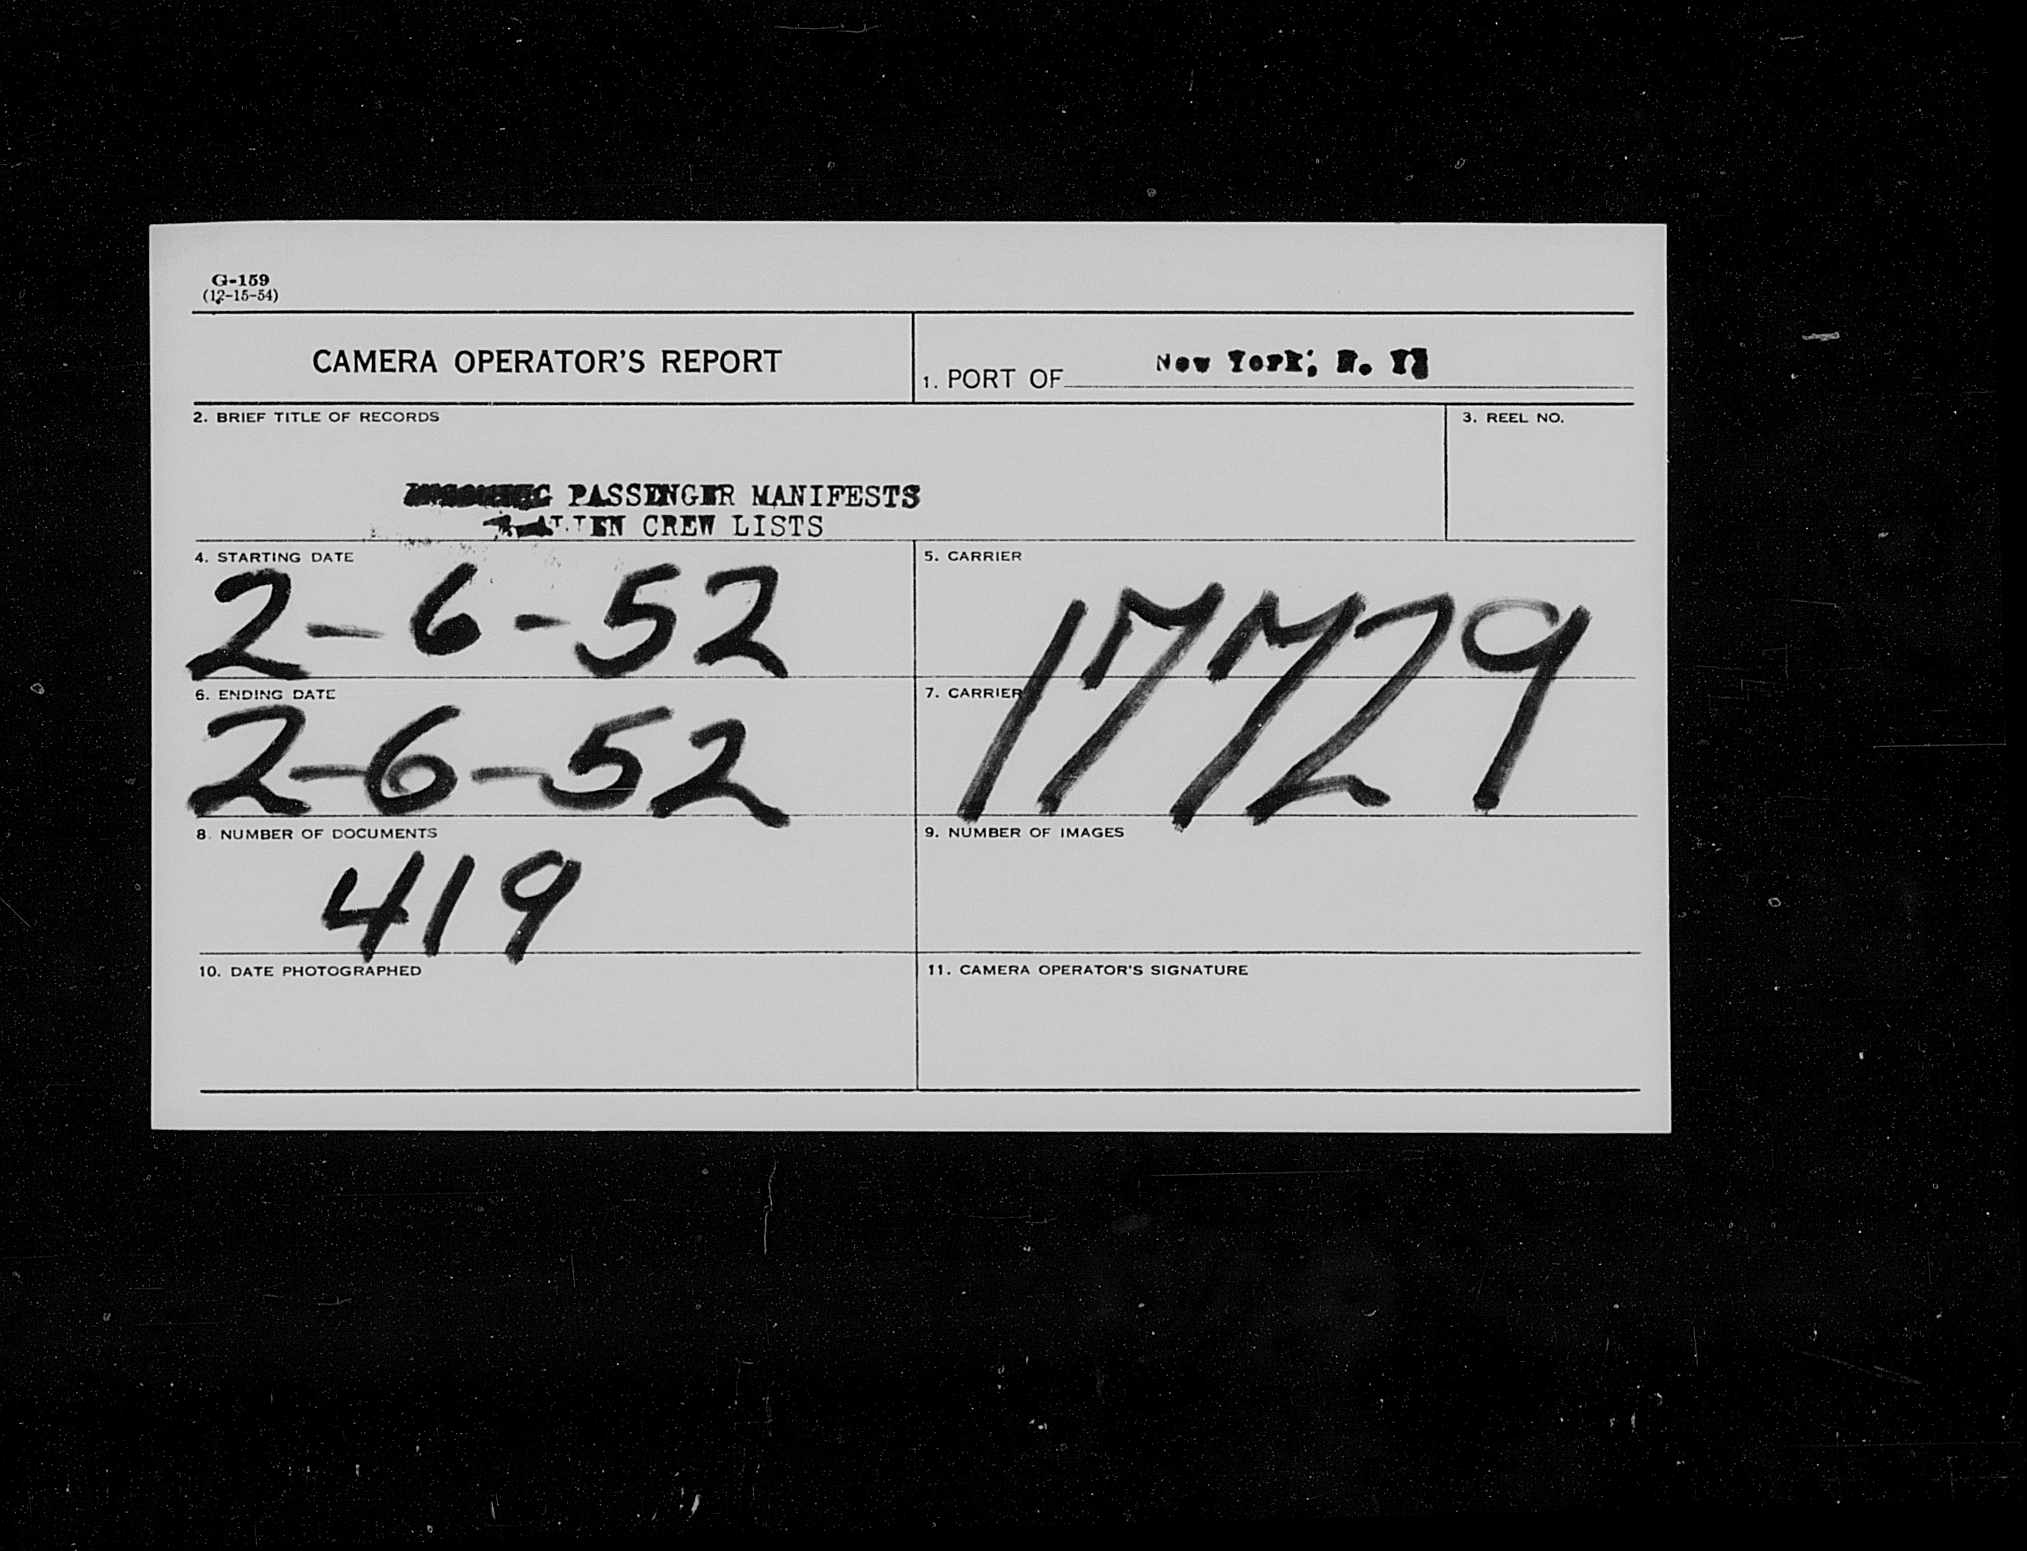 G-159
(12-15-54)
CAMERA OPERATOR'S REPORT
1. PORT OF New York, N. Y.
2. BRIEF TITLE OF RECORDS
3. REEL NO.
PASSENGER MANIFESTS
ALIEN CREW LISTS
4. STARTING DATE
2-6-52
5. CARRIER
17729
6. ENDING DATE
2-6-52
7. CARRIER
8. NUMBER OF DOCUMENTS
419
9. NUMBER OF IMAGES
10. DATE PHOTOGRAPHED
11. CAMERA OPERATOR'S SIGNATURE